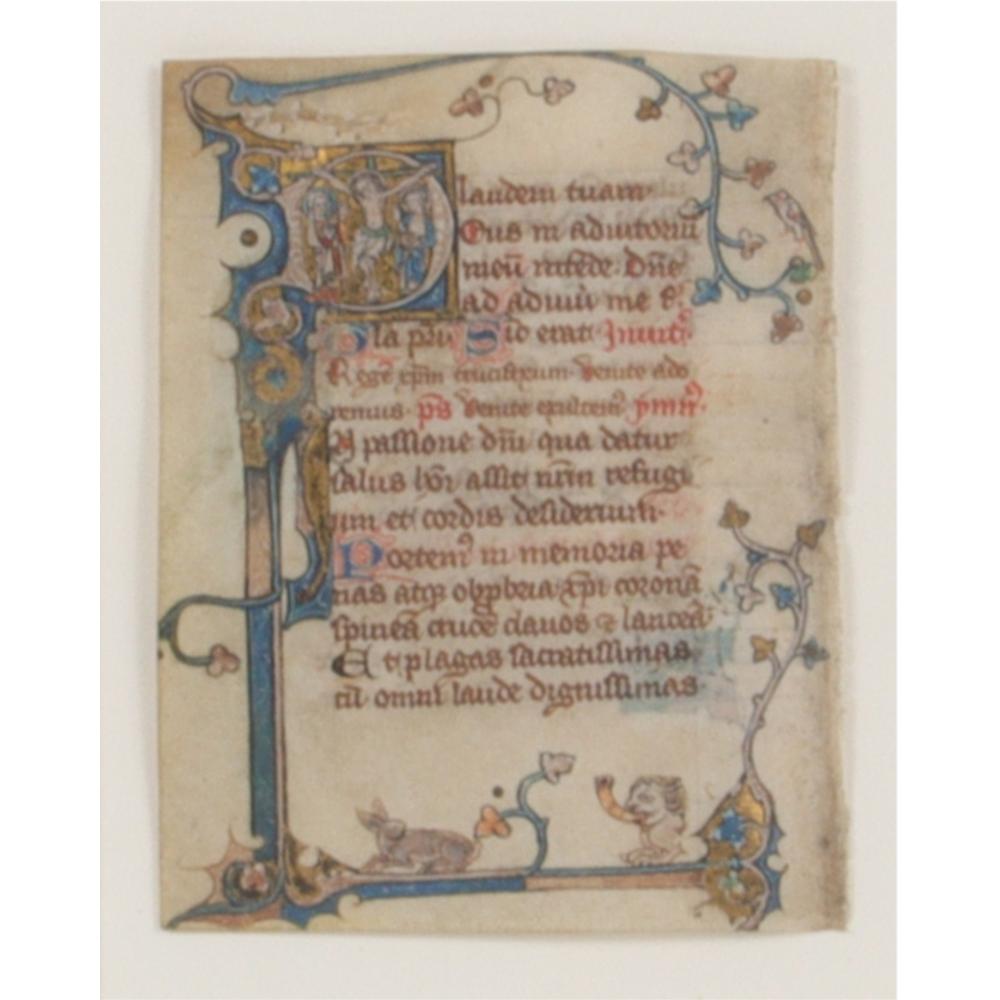 laudem tuam
Eus in adiutoriū
meū intēde Dn̄e
ad adiuū me f
Gla pr̄i Sic erat Inuit
Regē xp̄m crucifixum Venite ado
remus p̄s Venite exultem ymn
In passione dn̄i qua datur
salus hōi assit nr̄m refugi
um et cordis desiderium
Portem in memoria pe
nas atqȝ obprobria xp̄i coronā
spineā crucē clauos ⁊ lanceā
Et plagas sacratissimas
cū omni laude dignissimas